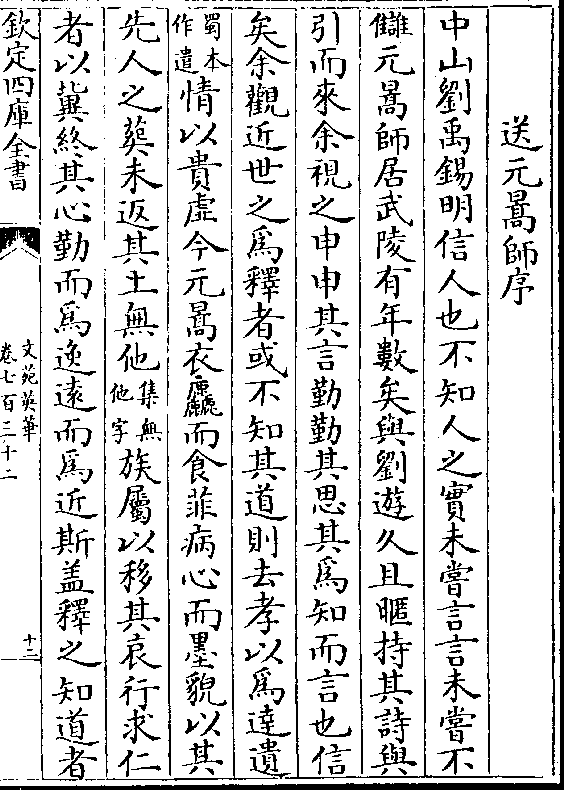 送元暠師序
中山劉禹錫明信人也不知人之實未嘗言言未嘗不
讎元暠師居武陵有年數矣與劉遊久且暱持其詩與
引而來余視之申申其言勤勤其思其爲知而言也信
矣余觀近世之爲釋者或不知其道則去孝以爲達遺
蜀本作遺情以貴虛今元暠衣麤而食菲病心而墨貌以其
先人之葬未返其土無他集無他字族屬以移其哀行求仁
者以冀終其心勤而爲逸遠而爲近斯盖釋之知道者
欽定四庫全書
文苑英華
卷七百三十二
十二